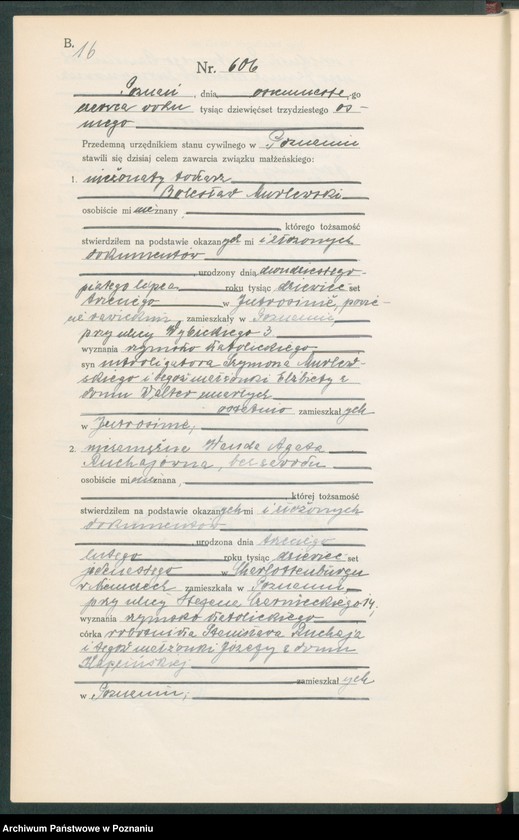 B.
16
Nr. 606
Poznań, dnia osiemnastego
czerwca roku tysiąc dziewięćset trzydziestego ós-
mego
Przedemną urzędnikiem stanu cywilnego w Poznaniu
stawili się dzisiaj celem zawarcia związku małżeńskiego:
1. nieżonaty tokarz
Bolesław Murlewski
osobiście mi nieznany
którego tożsamość
stwierdziłem na podstawie okazanych mi i złożonych
dokumentów
, urodzony dnia dwudziestego
piątego lipca roku tysiąc dziewięć set
trzeciego w Jutrosinie, powie-
cie rawickim, zamieszkały w Poznaniu,
przy ulicy Wybickiego 3
wyznania rzymsko katolickiego
syn introligatora Szymona Murlew-
skiego i tegoż małżonki Elżbiety z
domu Walter zmarłych
ostatnio zamieszkałych
w Jutrosinie,
2. niezamężna Wanda Agata
Ruchajówna, bez zawodu
osobiście mi nieznana,
której tożsamość
stwierdziłem na podstawie okazanych mi i złożonych
dokumentów
, urodzona dnia trzeciego
lutego roku tysiąc dziewięć set
jedenastego w Charlottenburgu
w Niemczech zamieszkała w Poznaniu,
przy ulicy Stefana Czarnieckiego 14,
wyznania rzymsko katolickiego
córka robotnika Stanisława Ruchaja
i tegoż małżonki Józefy z domu
zamieszkałych
w Poznaniu,
Archiwum Państwowe w Poznaniu